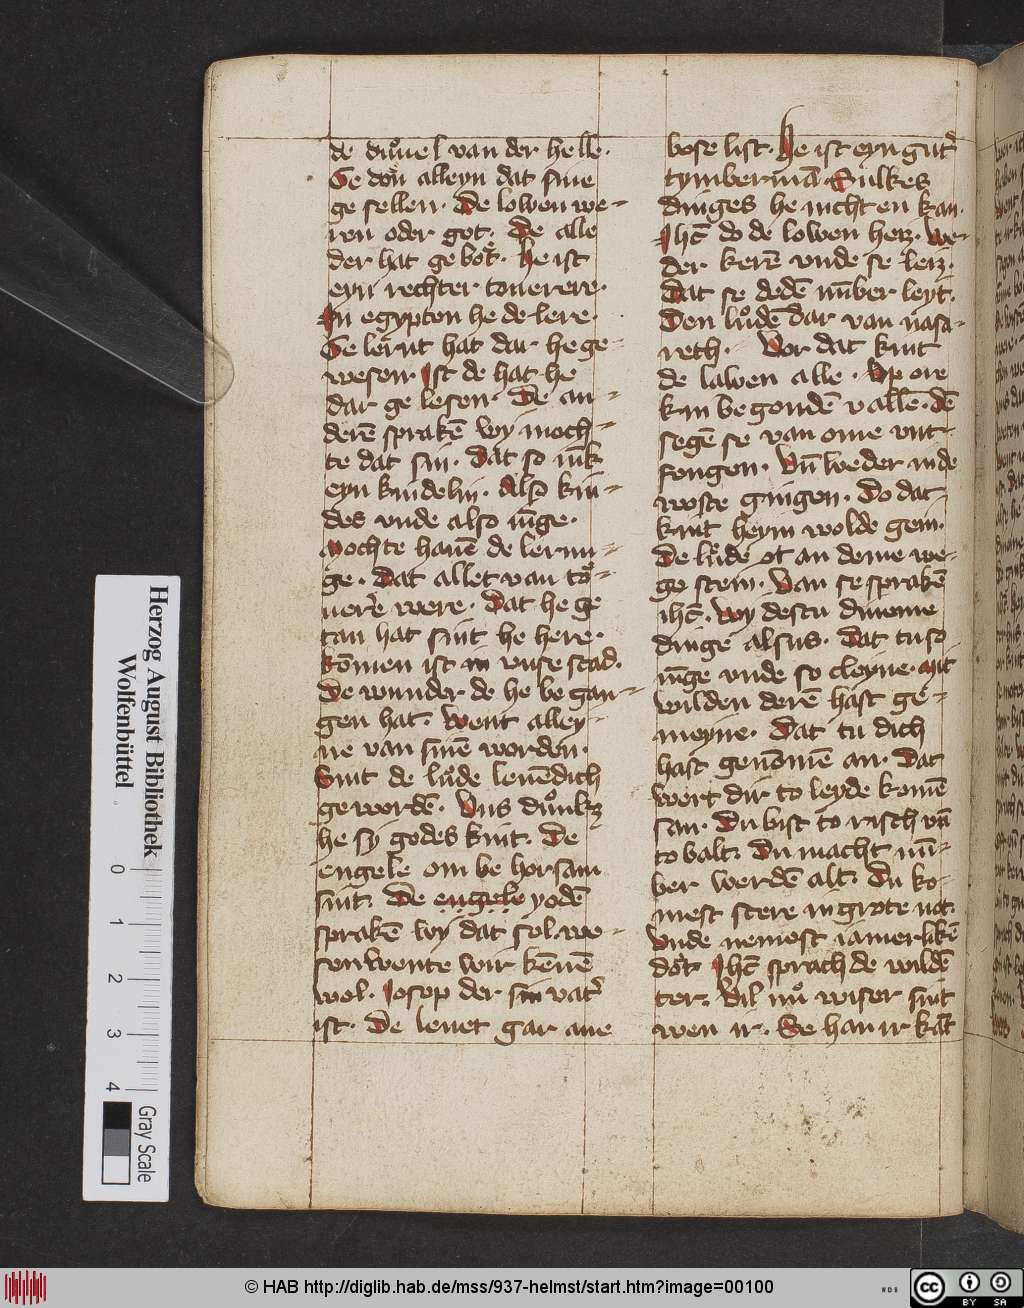 de duͦuel van der helle·
Se don alleyn dat sine
ge sellen· De lowen we-
ren oder got· De alle
der hat ge bot· he ist
eyn rechter touerere·
In egypten he de lere·
Ge lernt hat dar he ge-
wesen· Ist de hat he
dar ge lesen· De an-
derē sprakē wy moch-
te dat sin· Dat so iūk
eyn kindelin· Also kin-
des vnde also iūge·
Mochte hauē de lernu-
ge· Dat allet van to-
uer̄e were· Dat he ge
tan hat sint he here·
kōmen ist in vnse stad·
De wunder de he be gan-
gen hat· went alley-
ne van sinē worden·
Sint de luͦde leuēdich
ge wordē· Vns duͦnkz
he sy godes kint· De
engele om be horsam
sint· De engele yodē
sprakē wy dat sol we-
sen wente wir kēnē
wol· Iosep der sin vat̄
ist· De leuet gar ane
bose list· he ist eyn gut̄
tymbermā· Sulkes
dinges he nicht en kan·
Ihc̄ do de lowen herz· we-
der kerē vnde se lerz·
Dat se dedē nūber leyt·
Den luͦdē dar van nasa-
reth· Vor dat kint
de lawen alle· Vp ore
knu begondē vallē· dē
segē se van ome vnt-
fengen· Vn̄ weder in de
woste gingen· Do dat
kint heym wolde gein·
De luͦde ot an deme we-
ge stein· Van se sprakē
ihc̄· wy destu duͦome
dinge alsus· Dat tu so
iūge vnde so cleyne· Mit
wilden derē hast ge-
meyne· Dat tu dich
hast genōmē an· Dat
wert dir to leyde komē
san· Du bist to risch vn̄
to balt· Du macht nū-
ber werdē alt· Du ko-
mest stere in grote not·
Vnde nemest iamerlikē
dot· Ihc̄ sprach de wildē
ter· Vil nuͦ wiser sint
wen ir· Se han ir kāt
Herzog August Bibliothek
Wolfenbüttel
0
1
2
3
4
Gray Scale
© HAB http://diglib.hab.de/mss/937-helmst/start.htm?image=00100
WDB
cc
BY SA